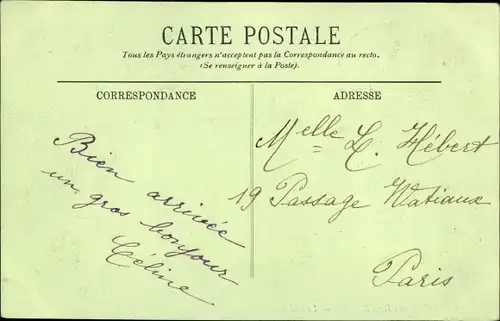 CARTE POSTALE
Tous les Pays étrangers n'acceptent pas la Correspondance au recto.
(Se renseigner à la Poste).
CORRESPONDANCE
ADRESSE
Bien arrivée
un gros bonjour
Céline
Melle L. Hébert
19 Passage Watiaux
Paris